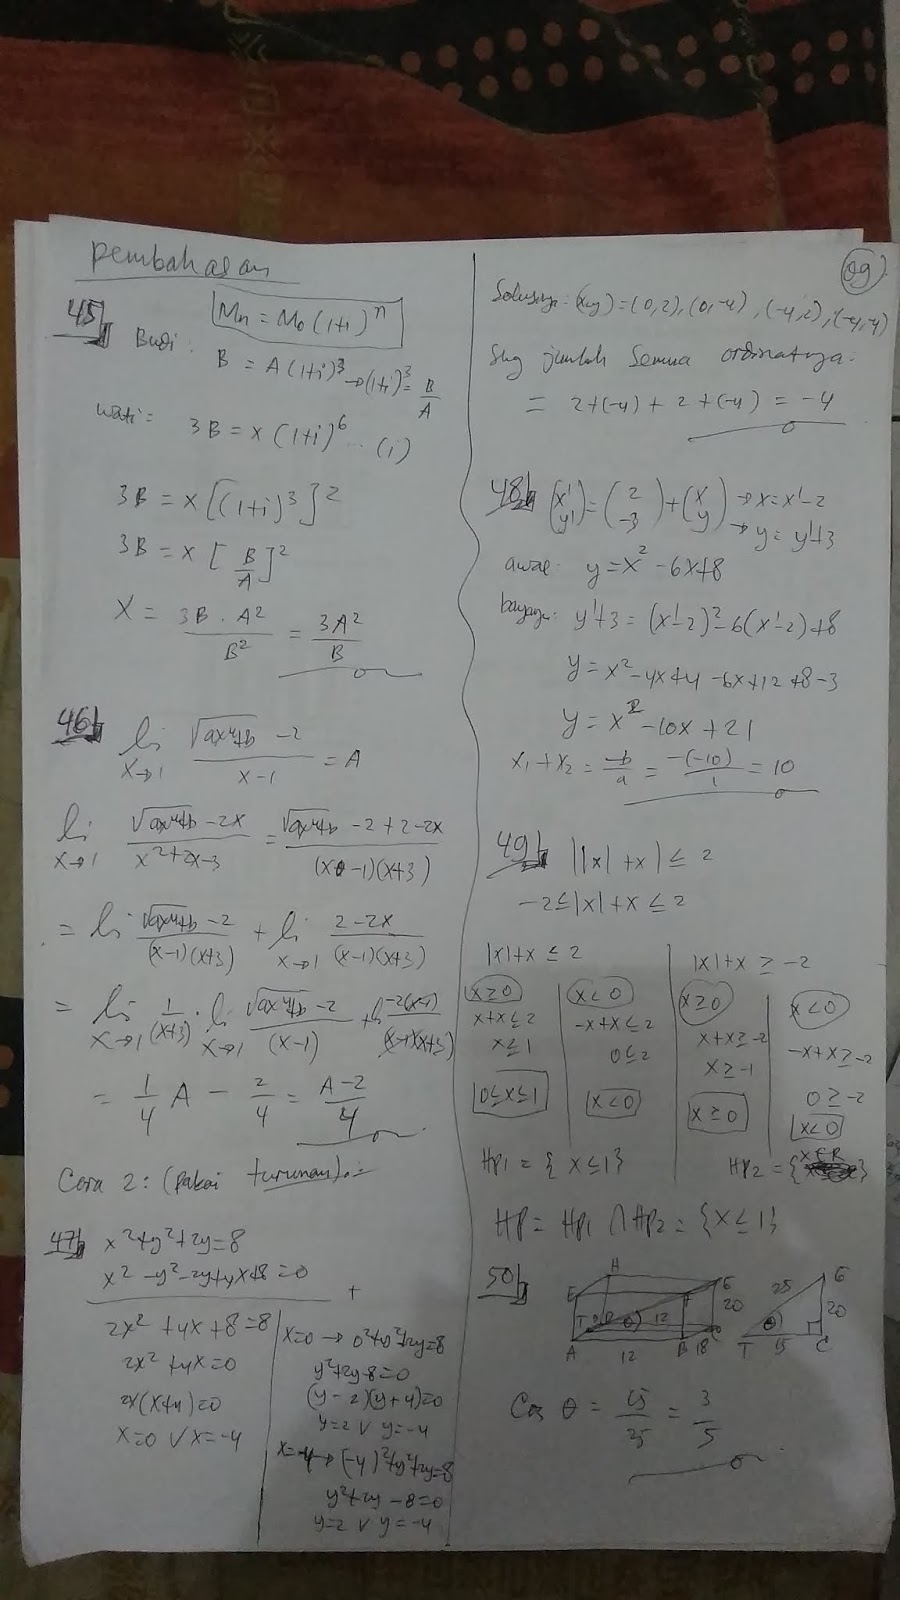 pembahasan
45)
Mn = Mo (1+i)^n
Budi:
B = A(1+i)^3 → (1+i)^3 = B/A
Wati =
3B = x (1+i)^6 ... (1)
3B = x [(1+i)^3]^2
3B = x [B/A]^2
X = 3B . A^2 / B^2 = 3A^2 / B
46)
li x→1 (√(ax^4+b) - 2) / (x-1) = A
li x→1 (√(ax^4+b) - 2x) / (x^2+2x-3) = (√(ax^4+b) - 2 + 2 - 2x) / ((x-1)(x+3))
= li (√(ax^4+b) - 2) / ((x-1)(x+3)) + li x→1 (2-2x) / ((x-1)(x+3))
= li x→1 1/(x+3) . li x→1 (√(ax^4+b) - 2) / (x-1) + li -2(x-1) / ((x-1)(x+3))
= 1/4 A - 2/4 = (A-2)/4
Cara 2: (pakai turunan)
47) x^2+y^2+2y=8
x^2 -y^2-2y+4x+8=0 +
2x^2 +4x+8=8
2x^2 +4x=0
2x(x+4)=0
x=0 v x=-4
x=0 → 0^2+y^2+2y=8
y^2+2y-8=0
(y-2)(y+4)=0
y=2 v y=-4
x=-4 → (-4)^2+y^2+2y=8
y^2+2y-8=0
y=2 v y=-4
09
Solusinya: (x,y) = (0,2), (0,-4), (-4,2), (-4,-4)
Shg jumlah semua ordinatnya
= 2+(-4) + 2 +(-4) = -4
48) (x' y') = (2 -3) + (x y) → x=x'-2
→ y = y'+3
awal: y=x^2-6x+8
y'+3 = (x'-2)^2-6(x'-2)+8
y = x^2-4x+4 -6x+12+8-3
y = x^2 -10x +21
x1+x2 = -b/a = -(-10)/1 = 10
49) ||x| +x| ≤ 2
-2≤|x|+x ≤2
|x|+x ≤ 2
x≥0
x+x≤2
x≤1
0≤x≤1
x<0
-x+x≤2
0≤2
x<0
|x|+x ≥ -2
x≥0
x+x≥-2
x≥-1
x≥0
x<0
-x+x≥-2
0≥-2
x<0
HP1 = {x≤1}
HP2 = {x∈R}
HP = HP1 ∩ HP2 = {x≤1}
50)
H
E
G
F
20
T
D
θ
12
A
12
B
18
C
25
G
20
θ
T
15
C
Cos θ = 15/25 = 3/5